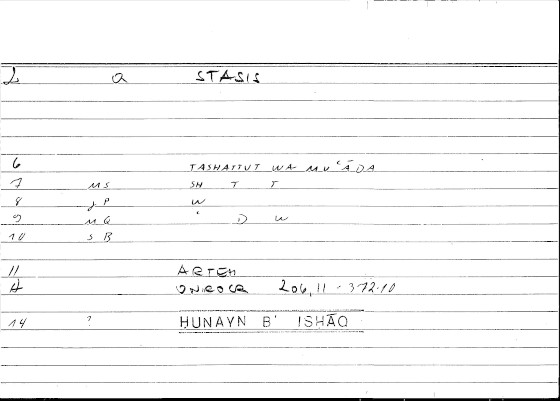 2 a STASIS
6 TASHATTUT WA-MUʿĀDA
7 MS SH T T
8 JP W
9 MQ ʿ D W
10 SB
11 ARTEM
A ONIROCR 206,11 - 372.10
14 ? HUNAYN B' ISHĀQ